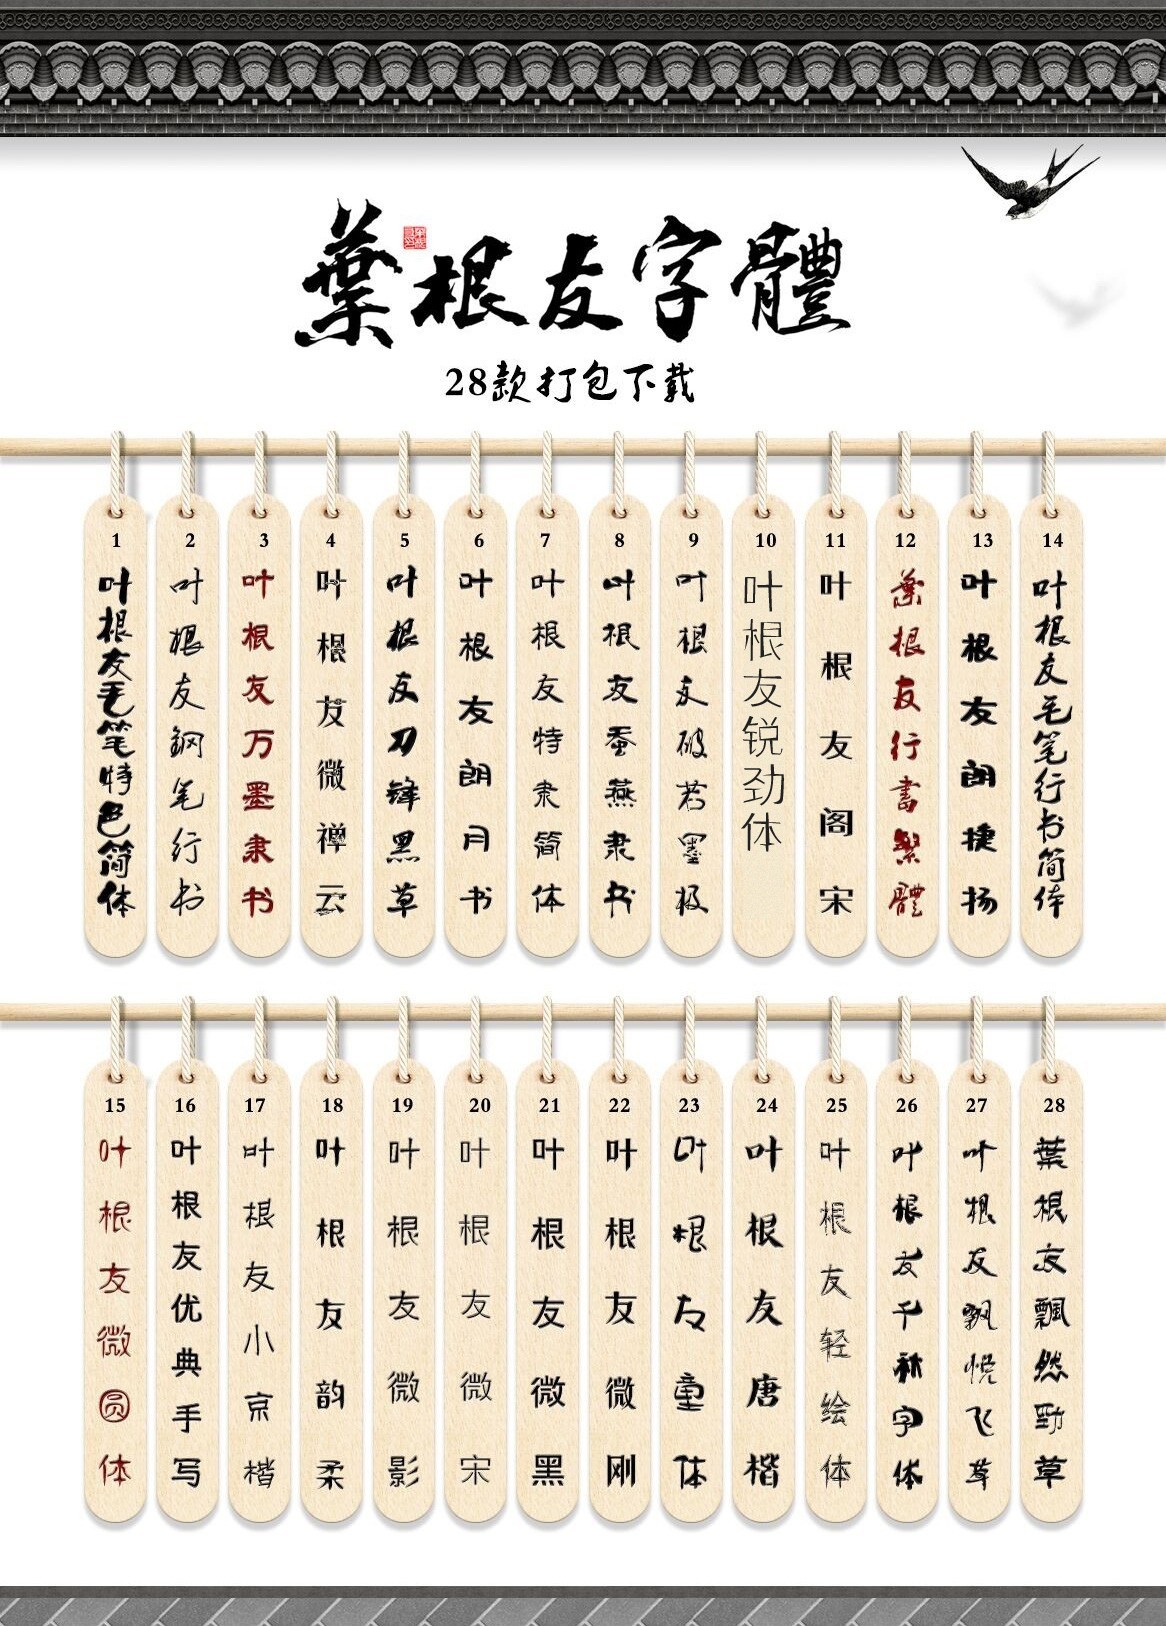 葉根友字體
28款打包下载
1
叶根友毛笔特色简体
2
叶根友钢笔行书
3
叶根友万墨隶书
4
叶根友微禅云
5
叶根友刀锋黑草
6
叶根友朗月书
7
叶根友特隶简体
8
叶根友蚕燕隶书
9
叶根友破若墨极
10
叶根友锐劲体
11
叶根友阁宋
12
葉根友行書繁體
13
叶根友朗捷扬
14
叶根友毛笔行书简体
15
叶根友微圆体
16
叶根友优典手写
17
叶根友小京楷
18
叶根友韵柔
19
叶根友微影
20
叶根友微宋
21
叶根友微黑
22
叶根友微刚
23
叶根友童体
24
叶根友唐楷
25
叶根友轻绘体
26
叶根友千秋字体
27
叶根友飘悦飞草
28
葉根友飄然勁草